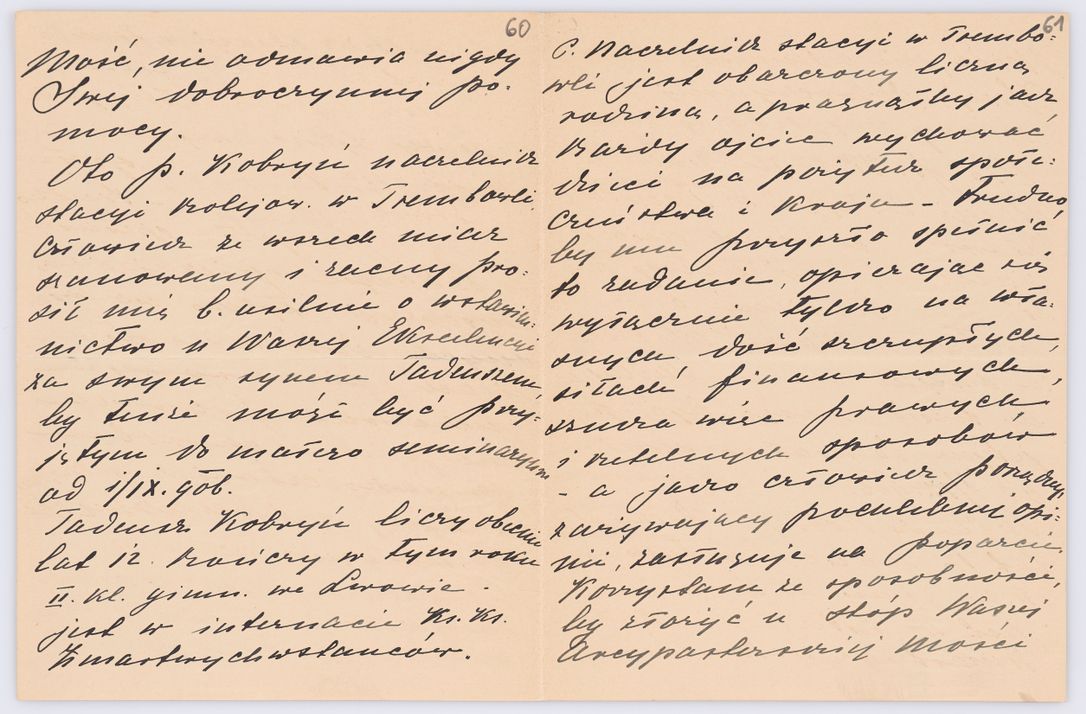 60
Mość, nie odmawia nigdy
Swej dobroczynnej po-
mocy.
Oto p. Kobryń naczelnik
stacyi kolejow. w Trembowli,
człowiek ze wszech miar
szanowany i zacny pro-
sił mię b. usilnie o wstawien-
nictwo u Waszej Ekscelencyi
za swym synem Tadeuszem,
by tenże mógł być przy-
jętym do małego seminaryum
od 1/IX. gób.
Tadeusz Kobryń liczy obecnie
lat 12. kończy w tym roku
II. kl. gimn. we Lwowie -
jest w internacie Ks. Ks.
Zmartwychwstańców.
61
P. Naczelnik stacyi w Trembo-
wli jest obarczony liczną
rodziną, a pragnąłby jak
każdy ojciec wychować
dzieci na pożytek społe-
czeństwa i Kraju - trudno
by mu przyszło spełnić
to zadanie, opierając się
wyłącznie tylko na wła-
snych dość szczupłych,
siłach finansowych,
szuka więc prawych
i rzetelnych sposobów
- a jako człowiek porządny,
zażywający pochlebnej opi-
nii, zasługuje na poparcie.
Korzystam ze sposobności,
by złożyć u stóp Waszej
Arcypasterskiej Mości